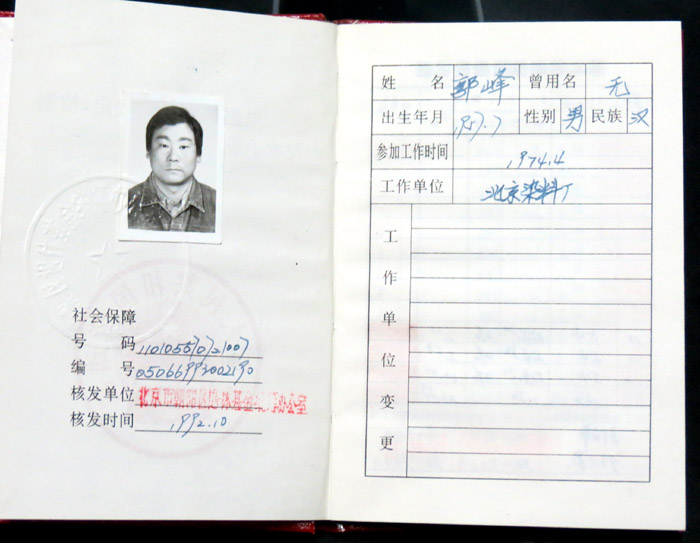 社会保障
号 码 110105570721007
编 号
核发单位 北京市朝阳区 办公室
核发时间 1992.10
姓 名 郭峰 曾用名 无
出生年月 1957.7 性别 男 民族 汉
参加工作时间 1974.4
工作单位 北京染料厂
工作单位变更